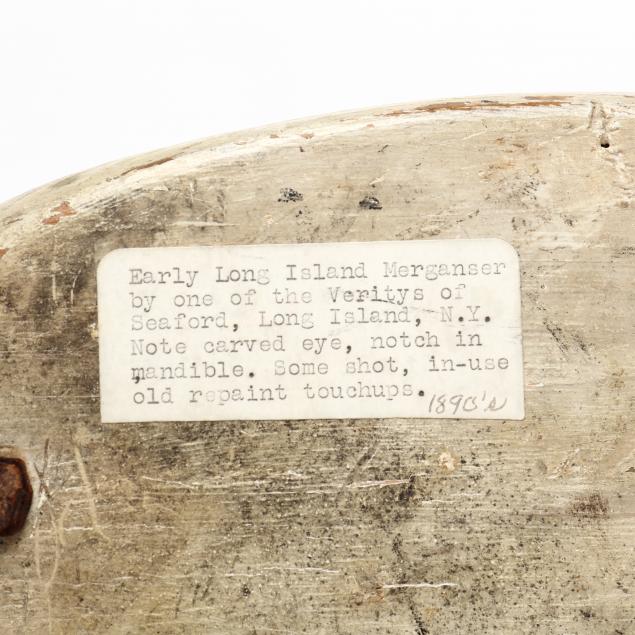 Early Long Island Merganser
by one of the Veritys of
Seaford, Long Island, N.Y.
Note carved eye, notch in
mandible. Some shot, in-use
old repaint touchups. 1890's